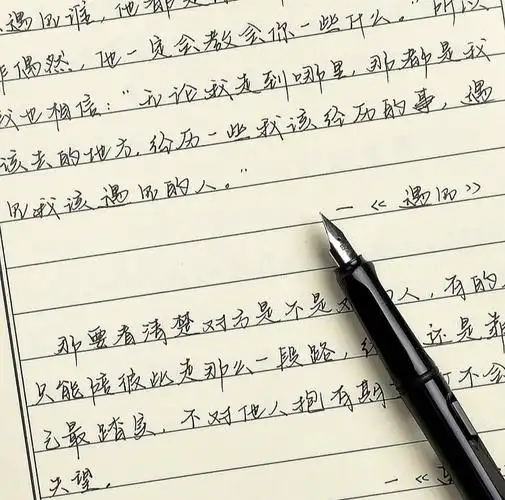 遇见谁，他都是
偶然，他一定会教会你一些什么。”所以
我也相信：“无论我走到哪里，那都是我
该去的地方，经历一些我该经历的事，遇
见我该遇见的人。”
—《遇见》
那要看清楚对方是不是对的人，有的
只能陪彼此走那么一段路，还是靠
己最踏实，不对他人抱有期不会
失望。
—《